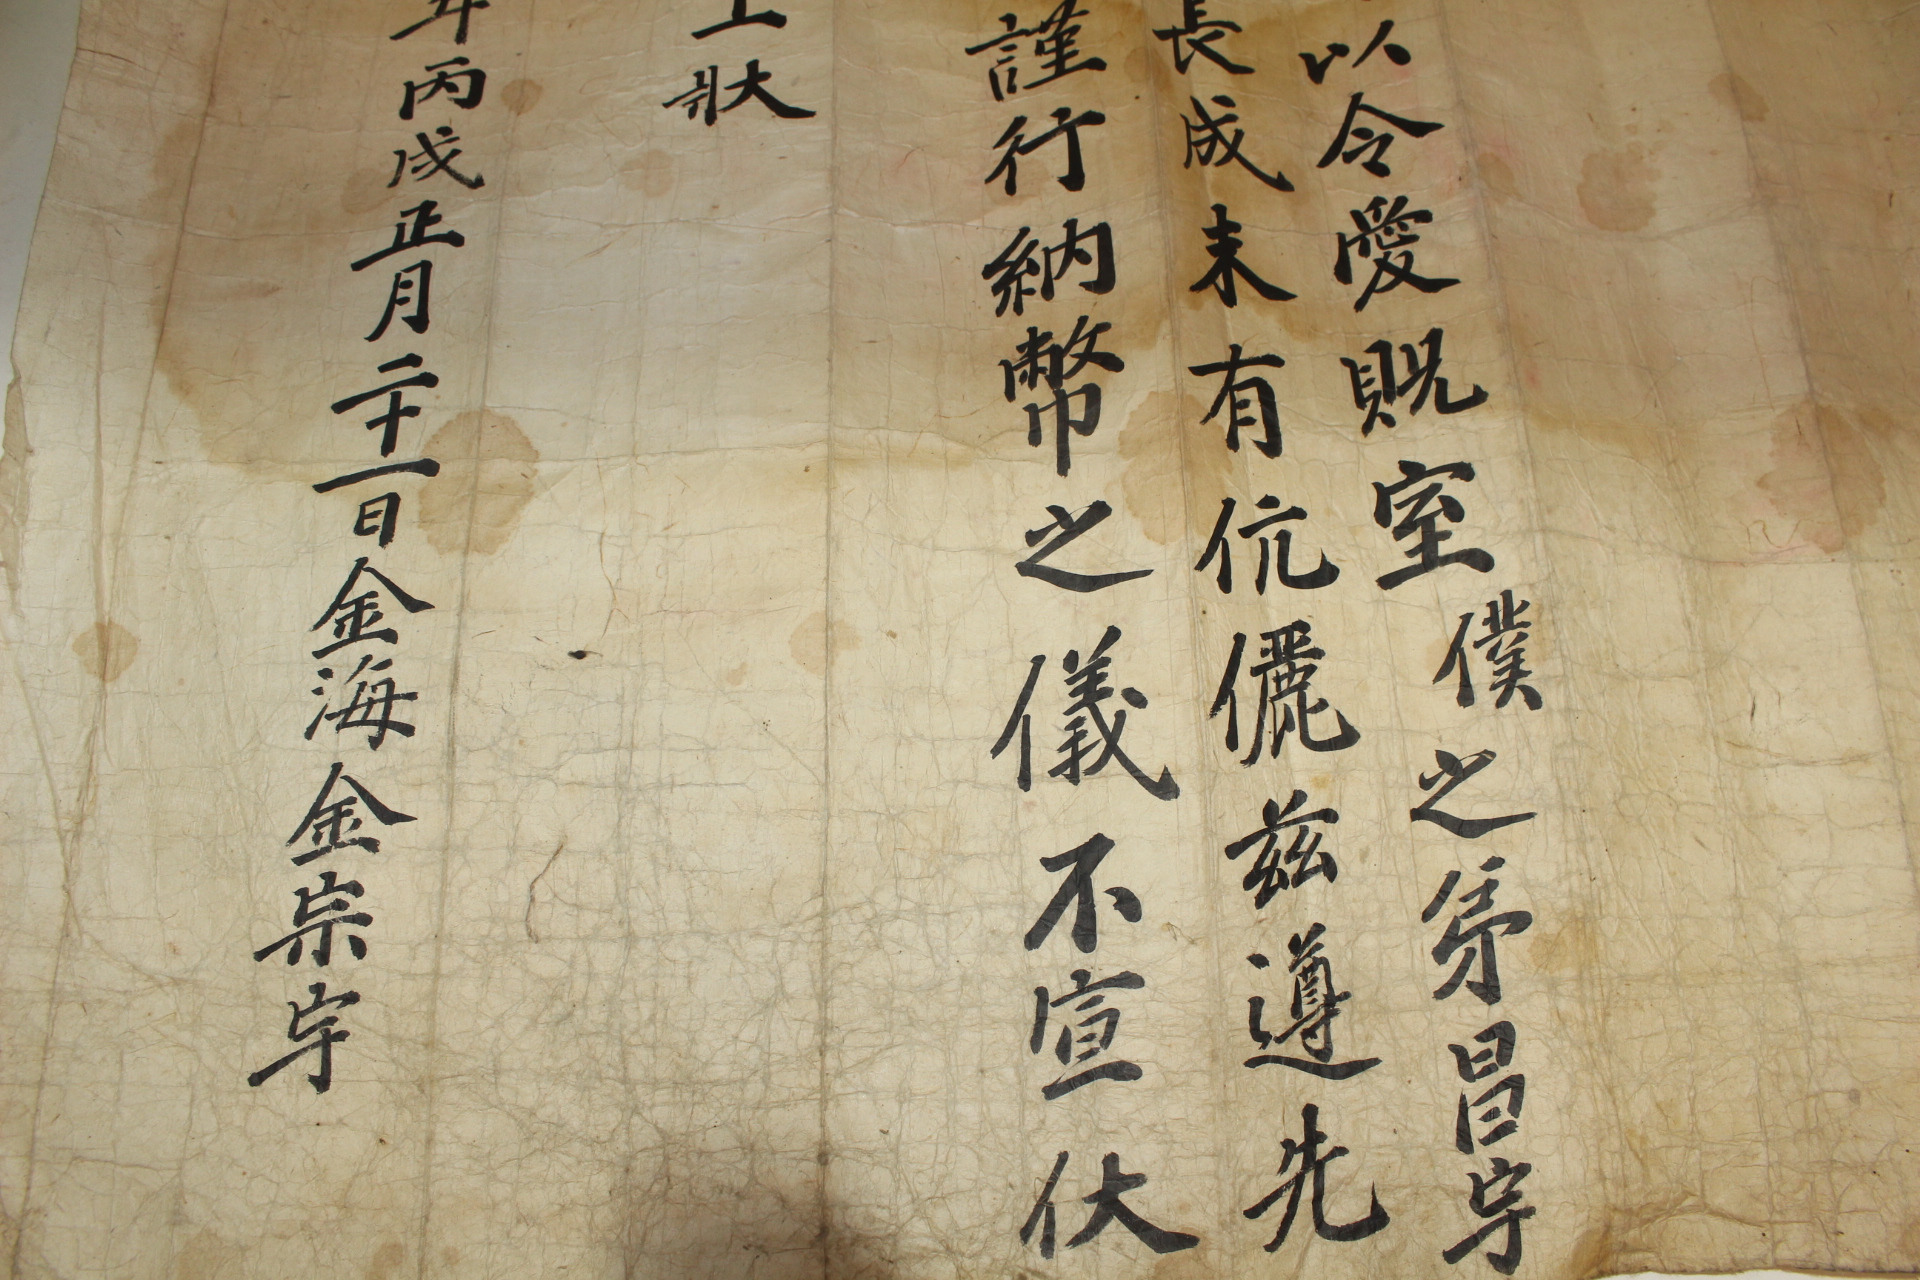 以令愛貺室僕之弟昌宇
長成未有伉儷玆遵先
謹行納幣之儀不宣伏
上狀
年丙戌正月二十一日金海金宗宇